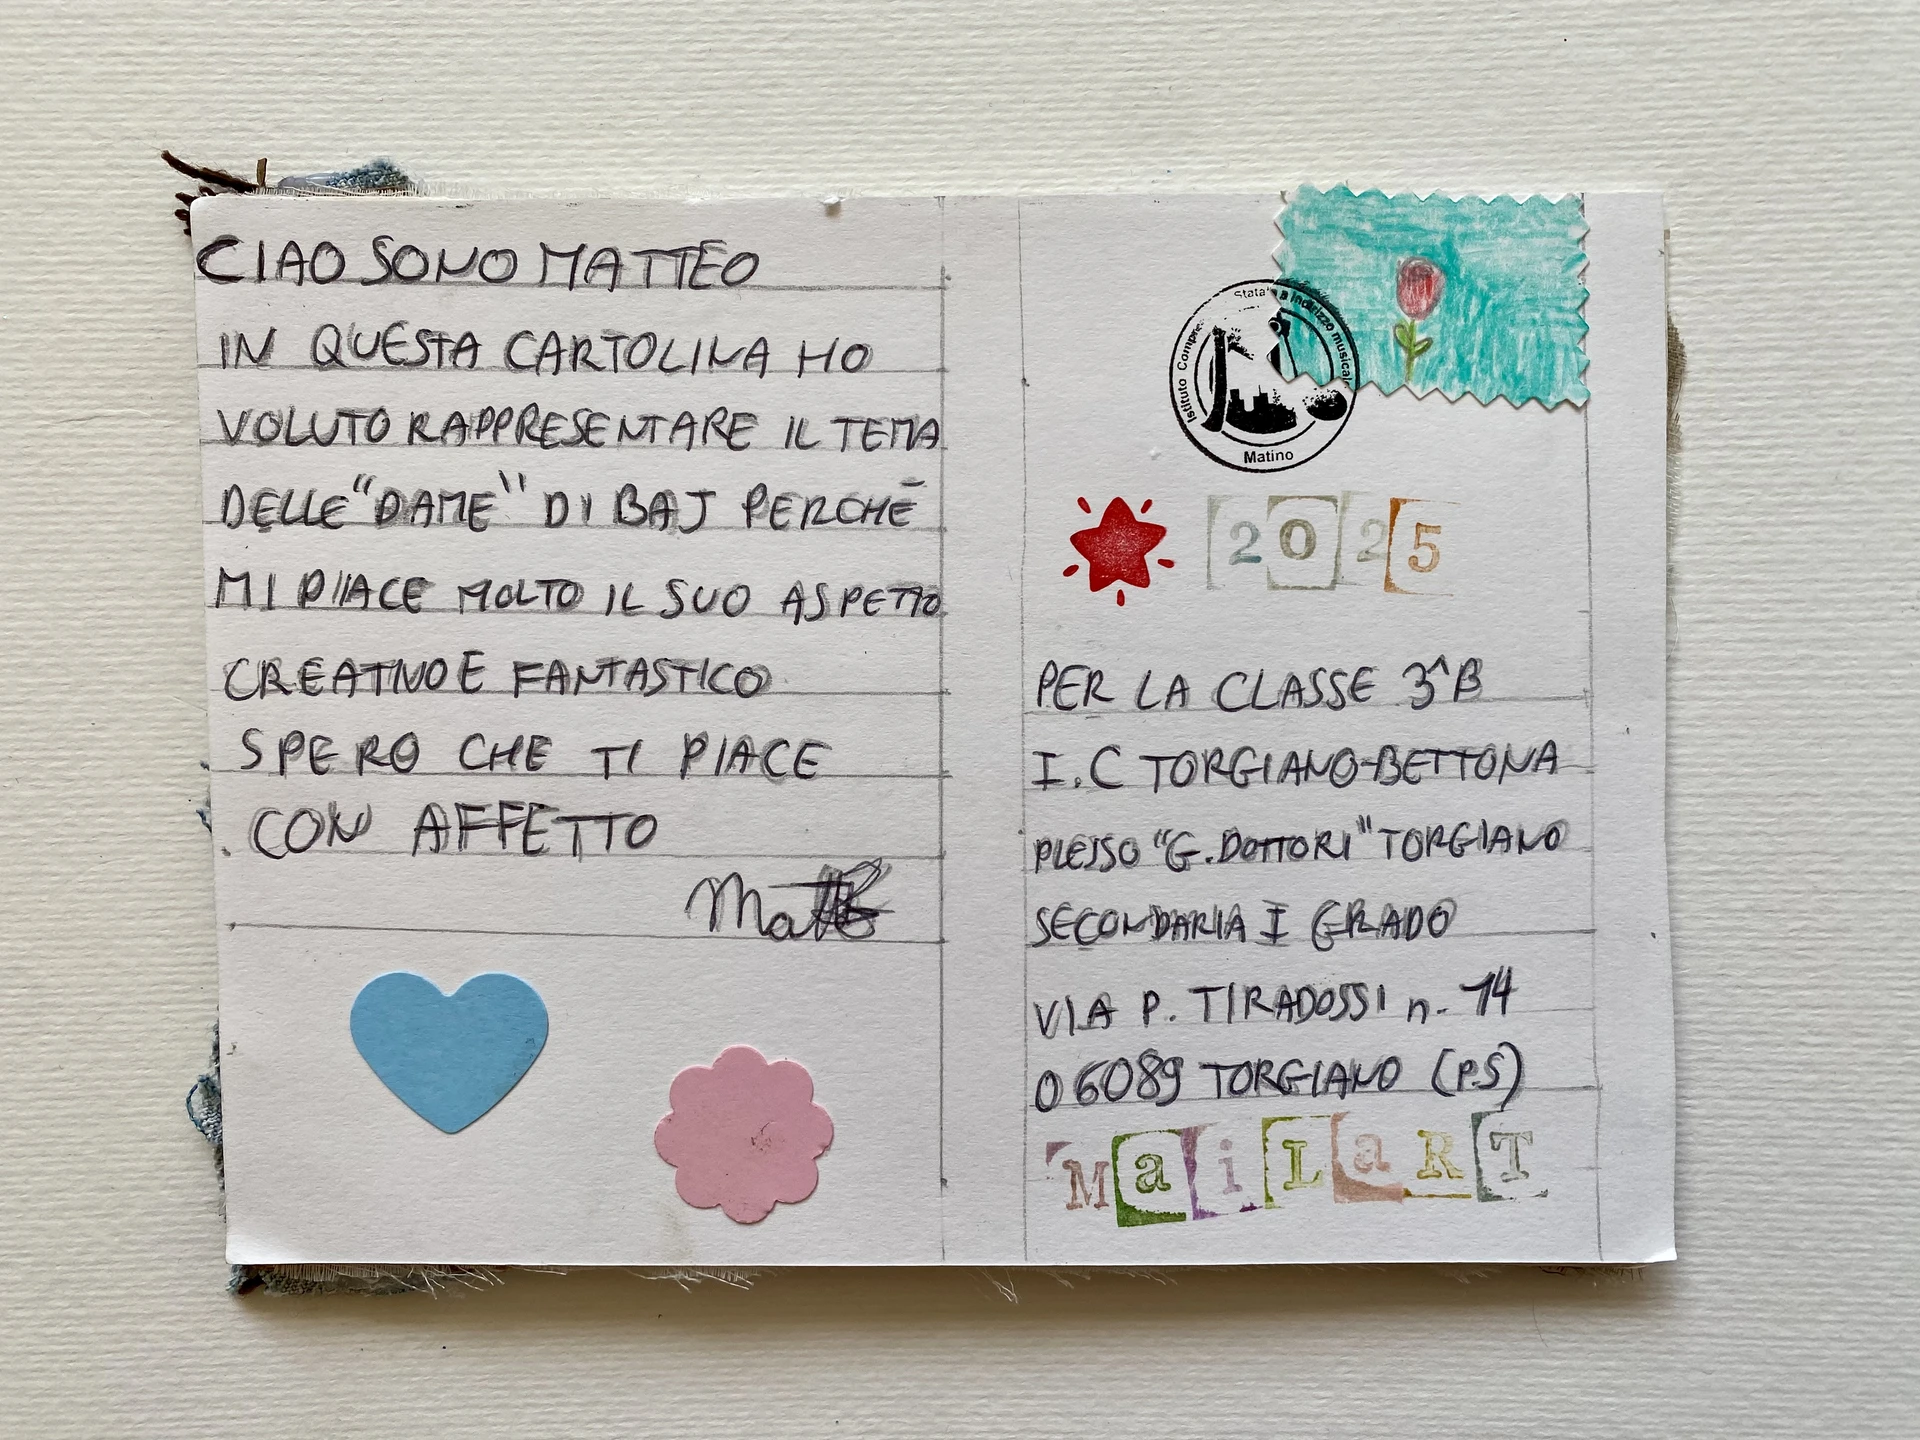 CIAO SONO MATTEO
IN QUESTA CARTOLINA HO
VOLUTO RAPPRESENTARE IL TEMA
DELLE "DAME" DI BAJ PERCHÉ
MI PIACE MOLTO IL SUO ASPETTO
CREATIVO E FANTASTICO
SPERO CHE TI PIACE
CON AFFETTO
Matteo
Istituto Compre
Statale a Indirizzo musicale
Matino
2025
PER LA CLASSE 3^B
I.C TORGIANO-BETTONA
PLESSO "G. DOTTORI" TORGIANO
SECONDARIA I GRADO
VIA P. TIRADOSSI n. 14
06089 TORGIANO (PS)
MaiLaRT